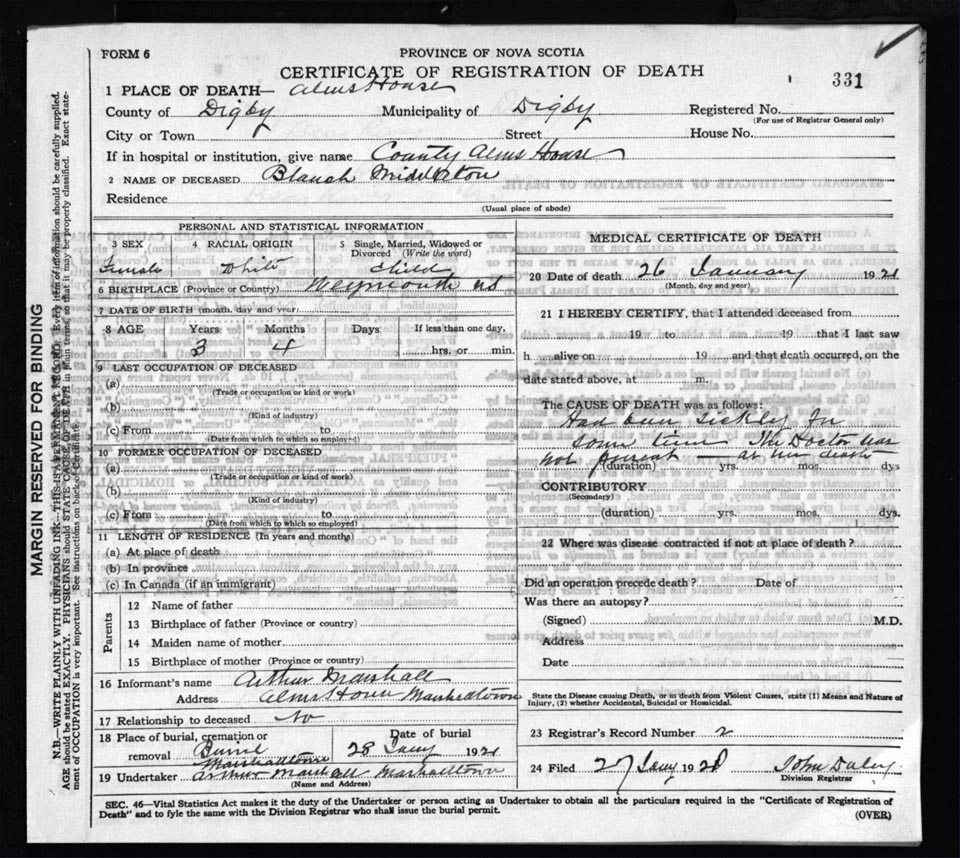 FORM 6
PROVINCE OF NOVA SCOTIA
CERTIFICATE OF REGISTRATION OF DEATH
331
1 PLACE OF DEATH— Alms House
County of Digby Municipality of Digby Registered No.
(For use of Registrar General only)
City or Town Street House No.
If in hospital or institution, give name County Alms House
2 NAME OF DECEASED Blanch Middleton
Residence
(Usual place of abode)
PERSONAL AND STATISTICAL INFORMATION
3 SEX 4 RACIAL ORIGIN 5 Single, Married, Widowed or Divorced (Write the word)
Female White Child
6 BIRTHPLACE (Province or Country) Weymouth NS
7 DATE OF BIRTH (month, day and year)
8 AGE Years Months Days If less than one day,
3 4 hrs. or min.
9 LAST OCCUPATION OF DECEASED
(a)
(Trade or occupation or kind or work)
(b)
(Kind of industry)
(c) From to
(Date from which to which so employed)
10 FORMER OCCUPATION OF DECEASED
(a)
(Trade or occupation or kind of work)
(b)
(Kind of industry)
(c) From to
(Date from which to which so employed)
11 LENGTH OF RESIDENCE (In years and months)
(a) At place of death
(b) In province
(c) In Canada (if an immigrant)
Parents
12 Name of father
13 Birthplace of father (Province or country)
14 Maiden name of mother
15 Birthplace of mother (Province or country)
16 Informant's name Arthur Marshall
Address Alms House Marshalltown
17 Relationship to deceased No
18 Place of burial, cremation or removal Date of burial
Marshalltown 28 Jany 192
19 Undertaker Arthur Marshall Marshalltown
(Name and Address)
MEDICAL CERTIFICATE OF DEATH
20 Date of death 26 January 192
(Month, day and year)
21 I HEREBY CERTIFY, that I attended deceased from
19 to 19 that I last saw
h alive on 19 and that death occurred, on the
date stated above, at m.
The CAUSE OF DEATH was as follows:
Had been sickly for
some time The Doctor was
not present — at her death
(duration) yrs. mos. dys
CONTRIBUTORY
(Secondary)
(duration) yrs. mos. dys.
22 Where was disease contracted if not at place of death?
Did an operation precede death? Date of
Was there an autopsy?
(Signed) M.D.
Address
Date
State the Disease causing Death, or in death from Violent Causes, state (1) Means and Nature of
Injury, (2) whether Accidental, Suicidal or Homicidal.
23 Registrar's Record Number 2
24 Filed 27 Jany 192 John Daley
Division Registrar
SEC. 46—Vital Statistics Act makes it the duty of the Undertaker or person acting as Undertaker to obtain all the particulars required in the "Certificate of Registration of
Death" and to fyle the same with the Division Registrar who shall issue the burial permit.
(OVER)
MARGIN RESERVED FOR BINDING
N.B.—WRITE PLAINLY WITH UNFADING INK—THIS IS A PERMANENT RECORD. Every item of information should be carefully supplied.
AGE should be stated EXACTLY. PHYSICIANS should STATE CAUSE OF DEATH in plain terms so that it may be properly classified. Exact state-
ment of OCCUPATION is very important. See instructions on back of Certificate.